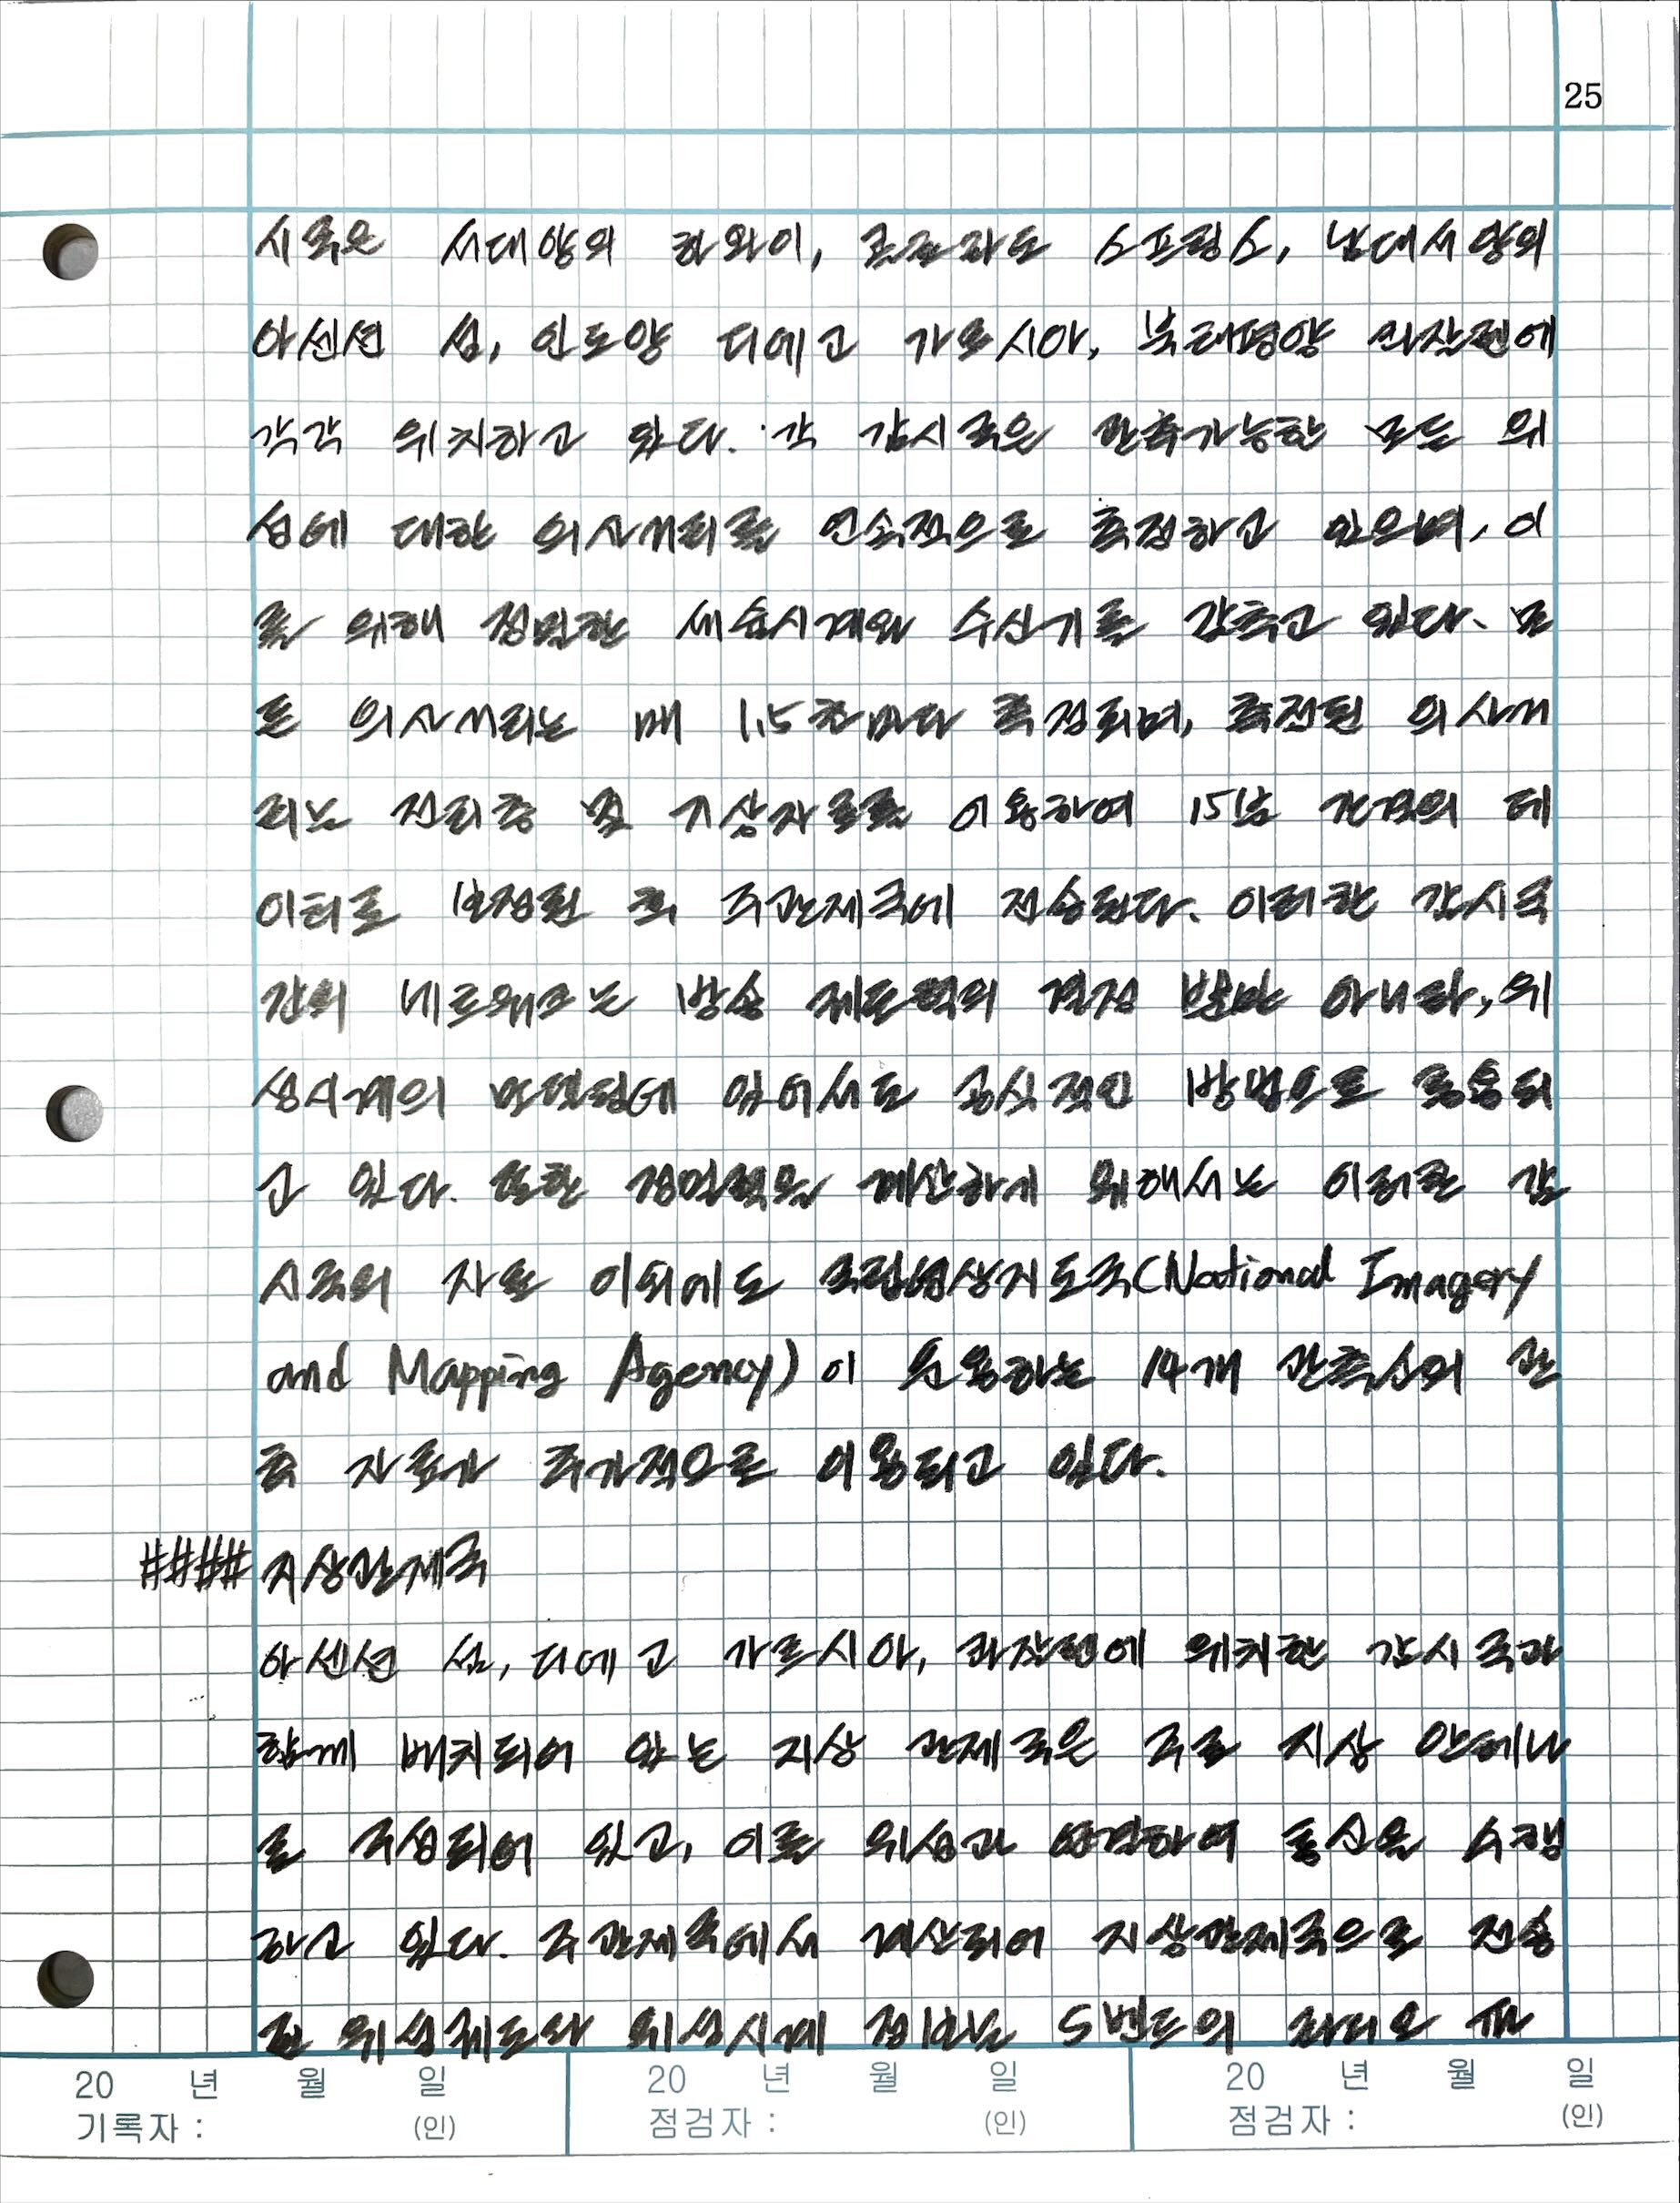 25
시국은 서대양의 하와이, 콜로라도 스프링스, 남대서양의
아센션 섬, 인도양 디에고 가르시아, 북태평양 콰잘렌에
각각 위치하고 있다. 각 감시국은 관측가능한 모든 위
성에 대한 의사거리를 연속적으로 측정하고 있으며, 이
를 위해 정밀한 세슘시계와 수신기를 갖추고 있다. 모
든 의사거리는 매 1.5초마다 측정되며, 측정된 의사거
리는 전리층 및 기상자료를 이용하여 15분 간격의 데
이터로 보정된 후 주관제국에 전송된다. 이러한 감시국
간의 네트워크는 방송 궤도력의 결정 뿐만 아니라, 위
성시계의 모델링에 있어서도 공식적인 방법으로 통용되
고 있다. 또한 정밀력을 계산하기 위해서는 이러한 감
시국의 자료 이외에도 국립영상지도국(National Imagery
and Mapping Agency)이 운용하는 14개 관측소의 관
측 자료가 추가적으로 이용되고 있다.
#### 지상관제국
아센션 섬, 디에고 가르시아, 콰잘렌에 위치한 감시국과
함께 배치되어 있는 지상 관제국은 주로 지상 안테나
로 구성되어 있고, 이를 위성과 연결하여 통신을 수행
하고 있다. 주관제국에서 계산되어 지상관제국으로 전송
된 위성궤도와 위성시계 정보는 S밴드의 라디오 파
20 년 월 일 20 년 월 일 20 년 월 일
기록자 : (인) 점검자 : (인) 점검자 : (인)